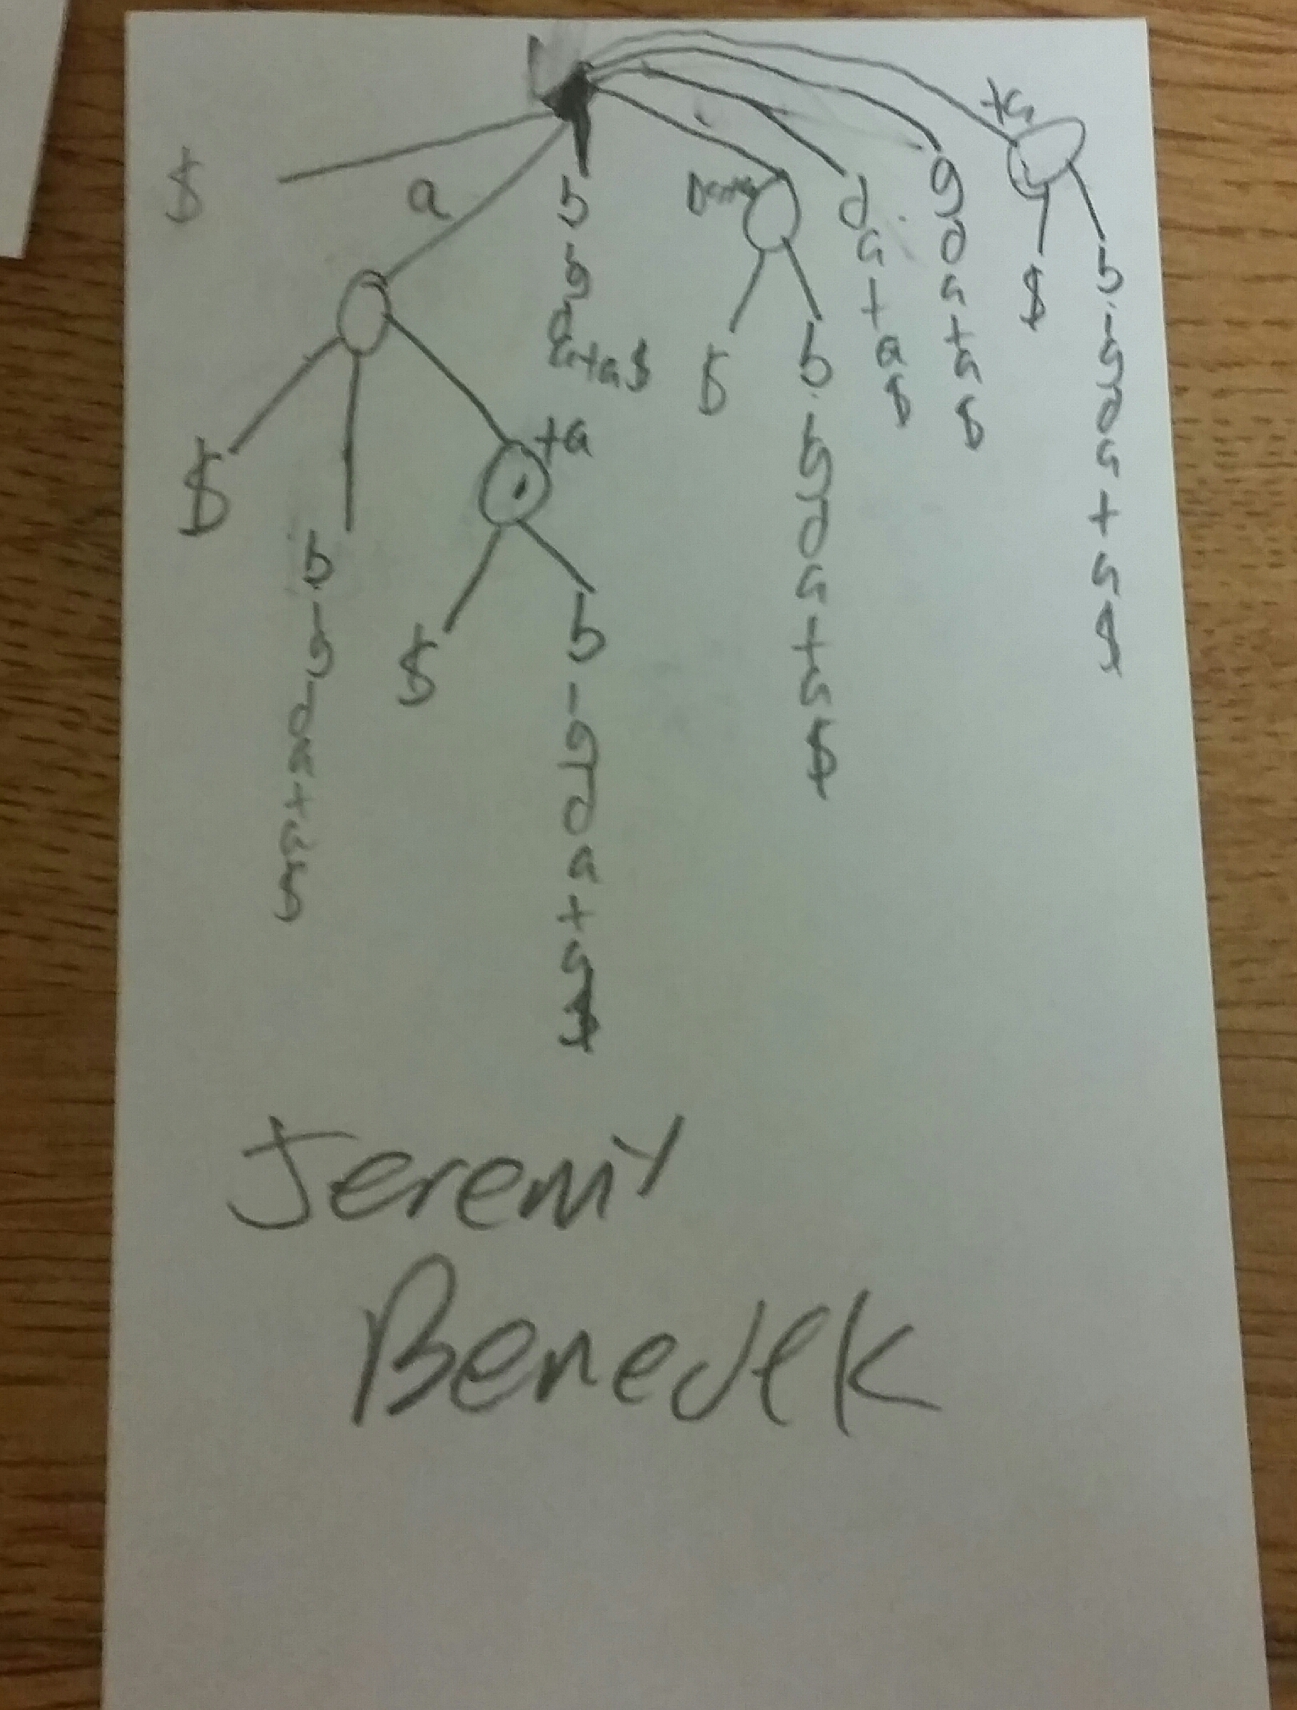 $
a
b
i
g
d
a
t
a
$
d
a
t
a
$
g
d
a
t
a
$
ta
$
b
i
g
d
a
t
a
$
$
b
i
g
d
a
t
a
$
$
b
i
g
d
a
t
a
$
ta
$
b
i
g
d
a
t
a
$
Jeremy
Benedek